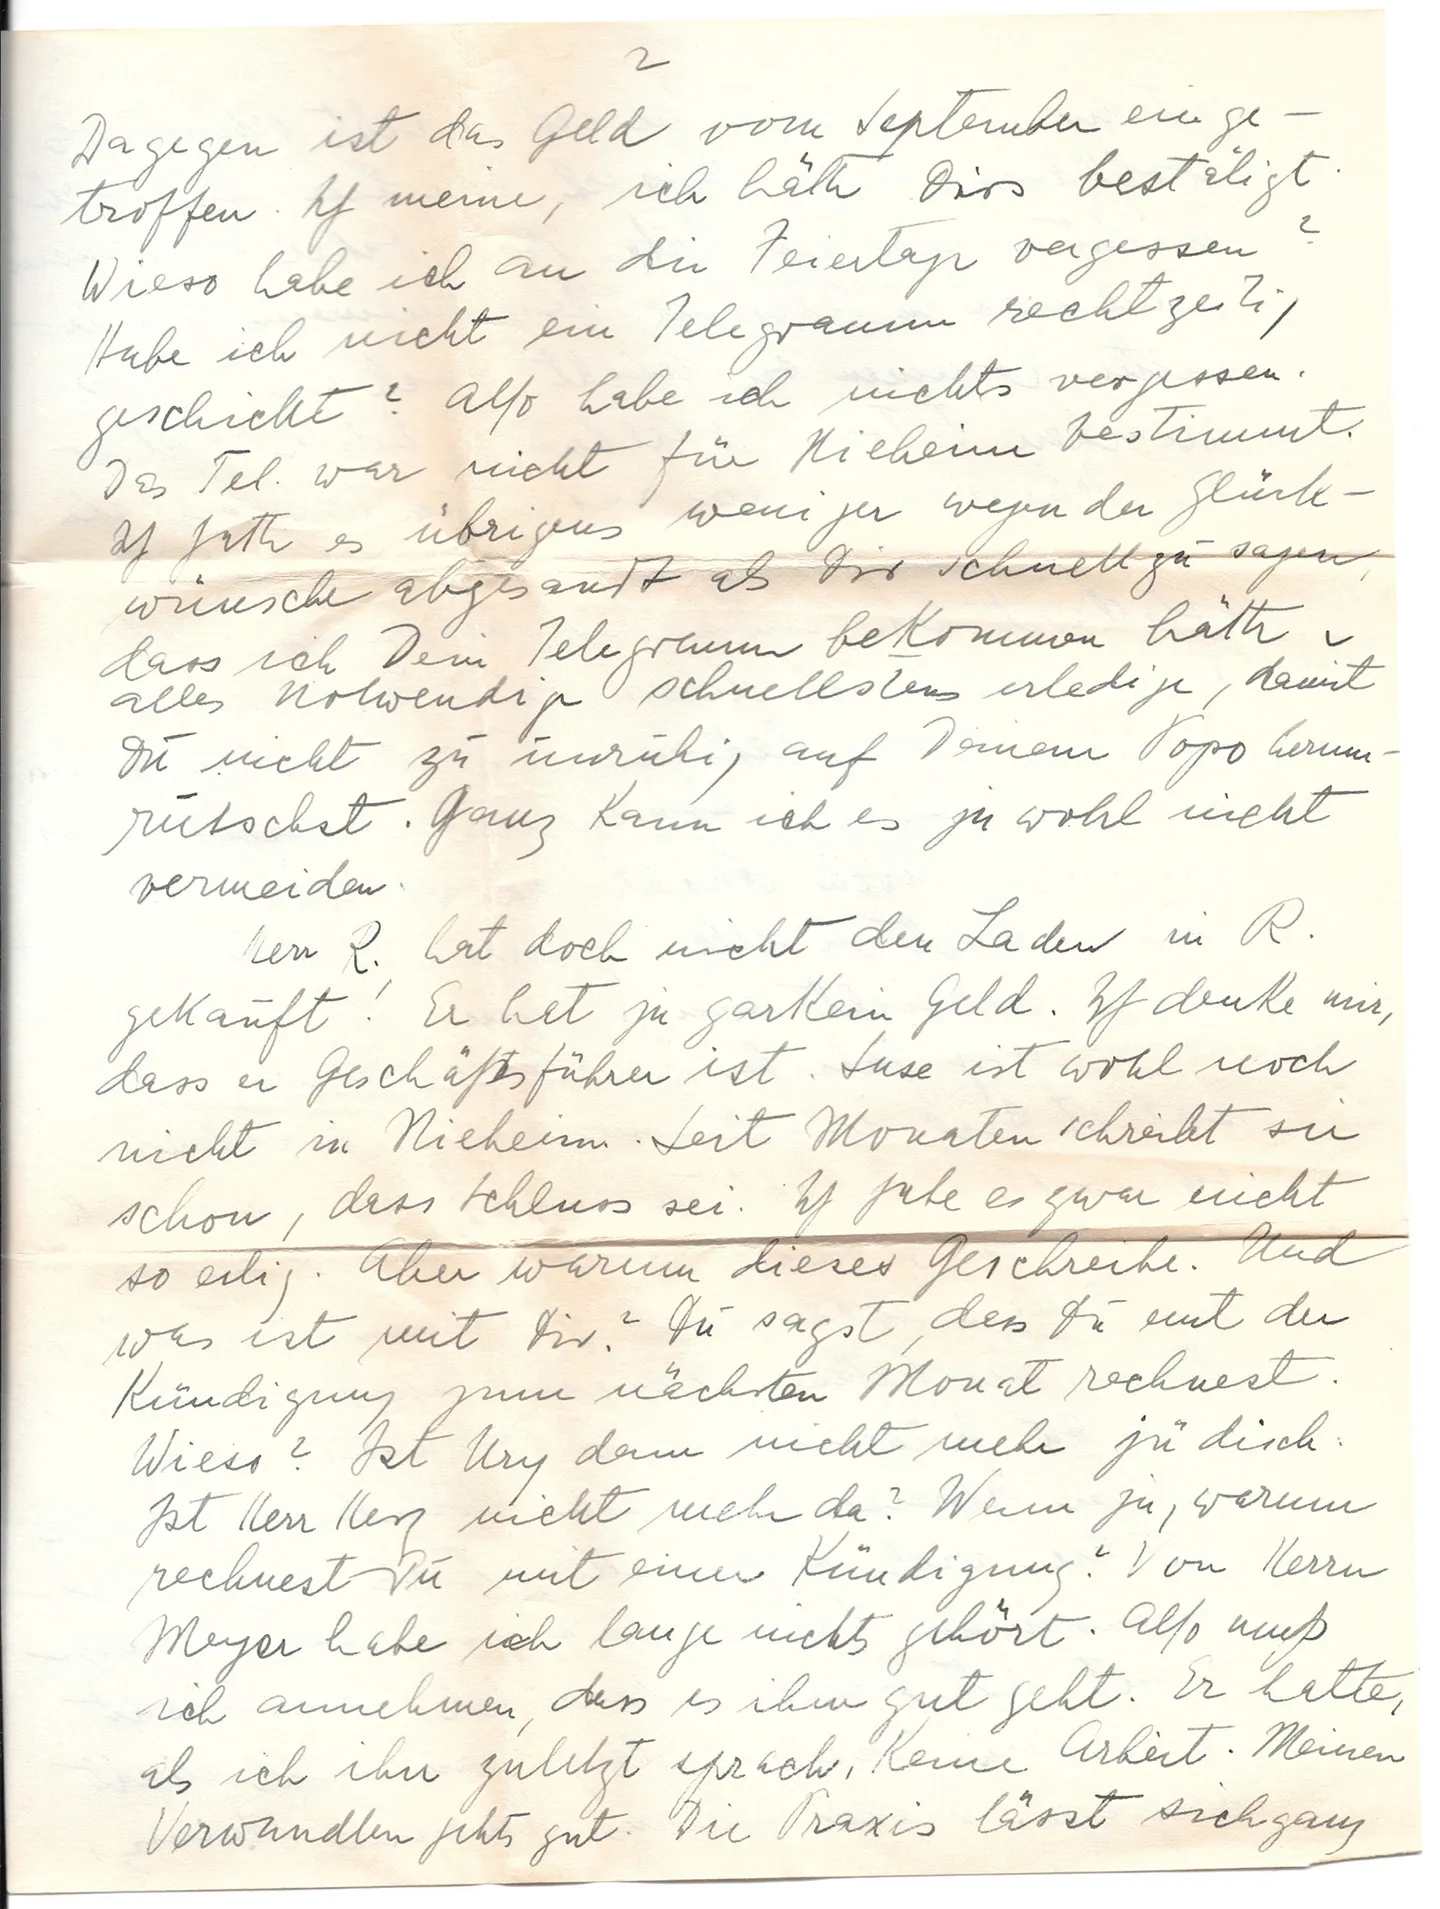 2
Dagegen ist das Geld vom September einge-
troffen. Ich meine, ich hätte Dirs bestätigt.
Wieso habe ich an die Feiertage vergessen?
Habe ich nicht ein Telegramm rechtzeitig
geschickt? Also habe ich nichts vergessen.
Das Tel. war nicht für Nieheim bestimmt.
Ich hatte es übrigens weniger wegen der Glück-
wünsche abgesandt als Dir schnell zu sagen,
dass ich Dein Telegramm bekommen hätte u
alles Notwendige schnellstens erledige, damit
Du nicht zu unruhig auf Deinem Popo herum-
rutschst. Ganz kann ich es ja wohl nicht
vermeiden.
Herr R. hat doch nicht den Laden in R.
gekauft! Er hat ja garkein Geld. Ich denke mir,
dass er Geschäftsführer ist. Suse ist wohl noch
nicht in Nieheim. Seit Monaten schreibt sie
schon, dass Schluss sei. Ich habe es zwar nicht
so eilig. Aber warum dieses Geschreibe. Und
was ist mit Dir? Du sagst, dass Du mit der
Kündigung zum nächsten Monat rechnest.
Wieso? Ist Ury denn nicht mehr jüdisch.
Ist Herr Herz nicht mehr da? Wenn ja, warum
rechnest Du mit einer Kündigung? Von Herrn
Meyer habe ich lange nichts gehört. Also muß
ich annehmen, dass es ihm gut geht. Er hatte,
als ich ihn zuletzt sprach, keine Arbeit. Meinen
Verwandten gehts gut. Die Praxis lässt sich ganz